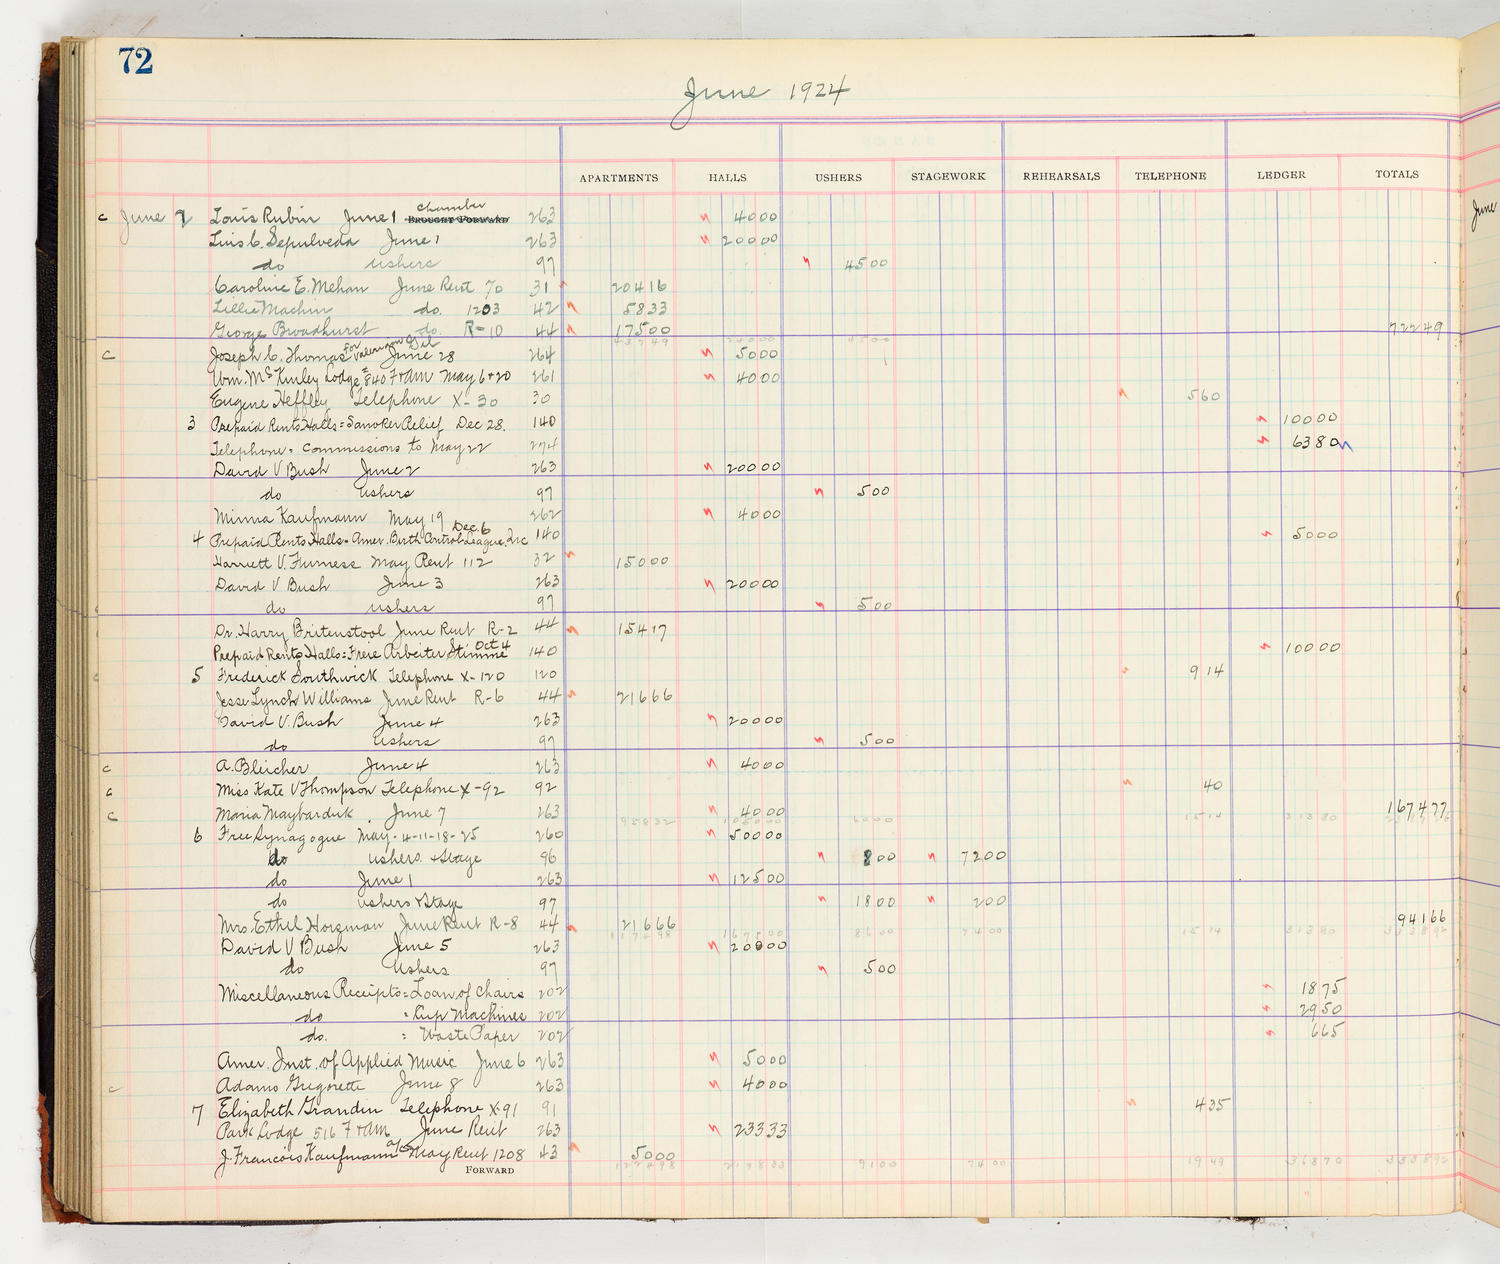 72
June 1924
APARTMENTS HALLS USHERS STAGEWORK REHEARSALS TELEPHONE LEDGER TOTALS
c June 2 Louis Rubin June 1 chamber BROUGHT FORWARD 263 4000
Luis C. Sepulveda June 1 263 20000
do ushers 97 4500
Caroline E. Mehan June Rent 70 31 20416
Lillie Machin do. 1203 42 5833
George Broadhurst do. R-10 44 17500 72249
c Joseph C. Thomas for June 28 264 5000
Wm. McKinley Lodge #840 F+AM May 6+20 261 4000
Eugene Heffley Telephone X-30 30 560
3 Prepaid Rents Halls = Smoker Relief Dec 28. 140 10000
Telephone = Commissions to May 22 274 6380
David V Bush June 2 263 20000
do ushers 97 500
Minna Kaufmann May 19 262 4000
4 Prepaid Rents Halls = Amer. Birth Control League, Inc Dec. 6 140 5000
Harriett V. Furness May Rent 112 32 15000
David V Bush June 3 263 20000
do ushers 97 500
Dr. Harry Britenstool June Rent R-2 44 15417
Prepaid Rents Halls = Freie Arbeiter Stimme Oct 4 140 10000
5 Frederick Southwick Telephone X-120 120 914
Jesse Lynch Williams June Rent R-6 44 21666
David V. Bush June 4 263 20000
do ushers 97 500
c A. Bleicher June 4 263 4000
c Miss Kate V Thompson Telephone X-92 92 40
c Maria Maybarduk. June 7 263 4000 167477
6 Free Synagogue May-4-11-18-25 260 50000
do ushers + Stage 96 00 7200
do June 1 263 12500
do ushers + Stage 97 1800 200
Mrs Ethel Horsman June Rent R-8 44 21666 94166
David V Bush June 5 263 20000
do ushers 97 500
Miscellaneous Receipts = Loan of Chairs 202 1875
do = Cup Machines 202 2950
do. = Waste Paper 202 665
Amer. Inst. of Applied Music June 6 263 5000
c Adamo Gregorette June 8 263 4000
7 Elizabeth Grandin Telephone X-91 91 435
Park Lodge 516 F+AM June Rent 263 23333
J. Francois Kaufmann a/c May Rent 1208 43 5000
FORWARD 9100 7400 1949 36870 333892
June